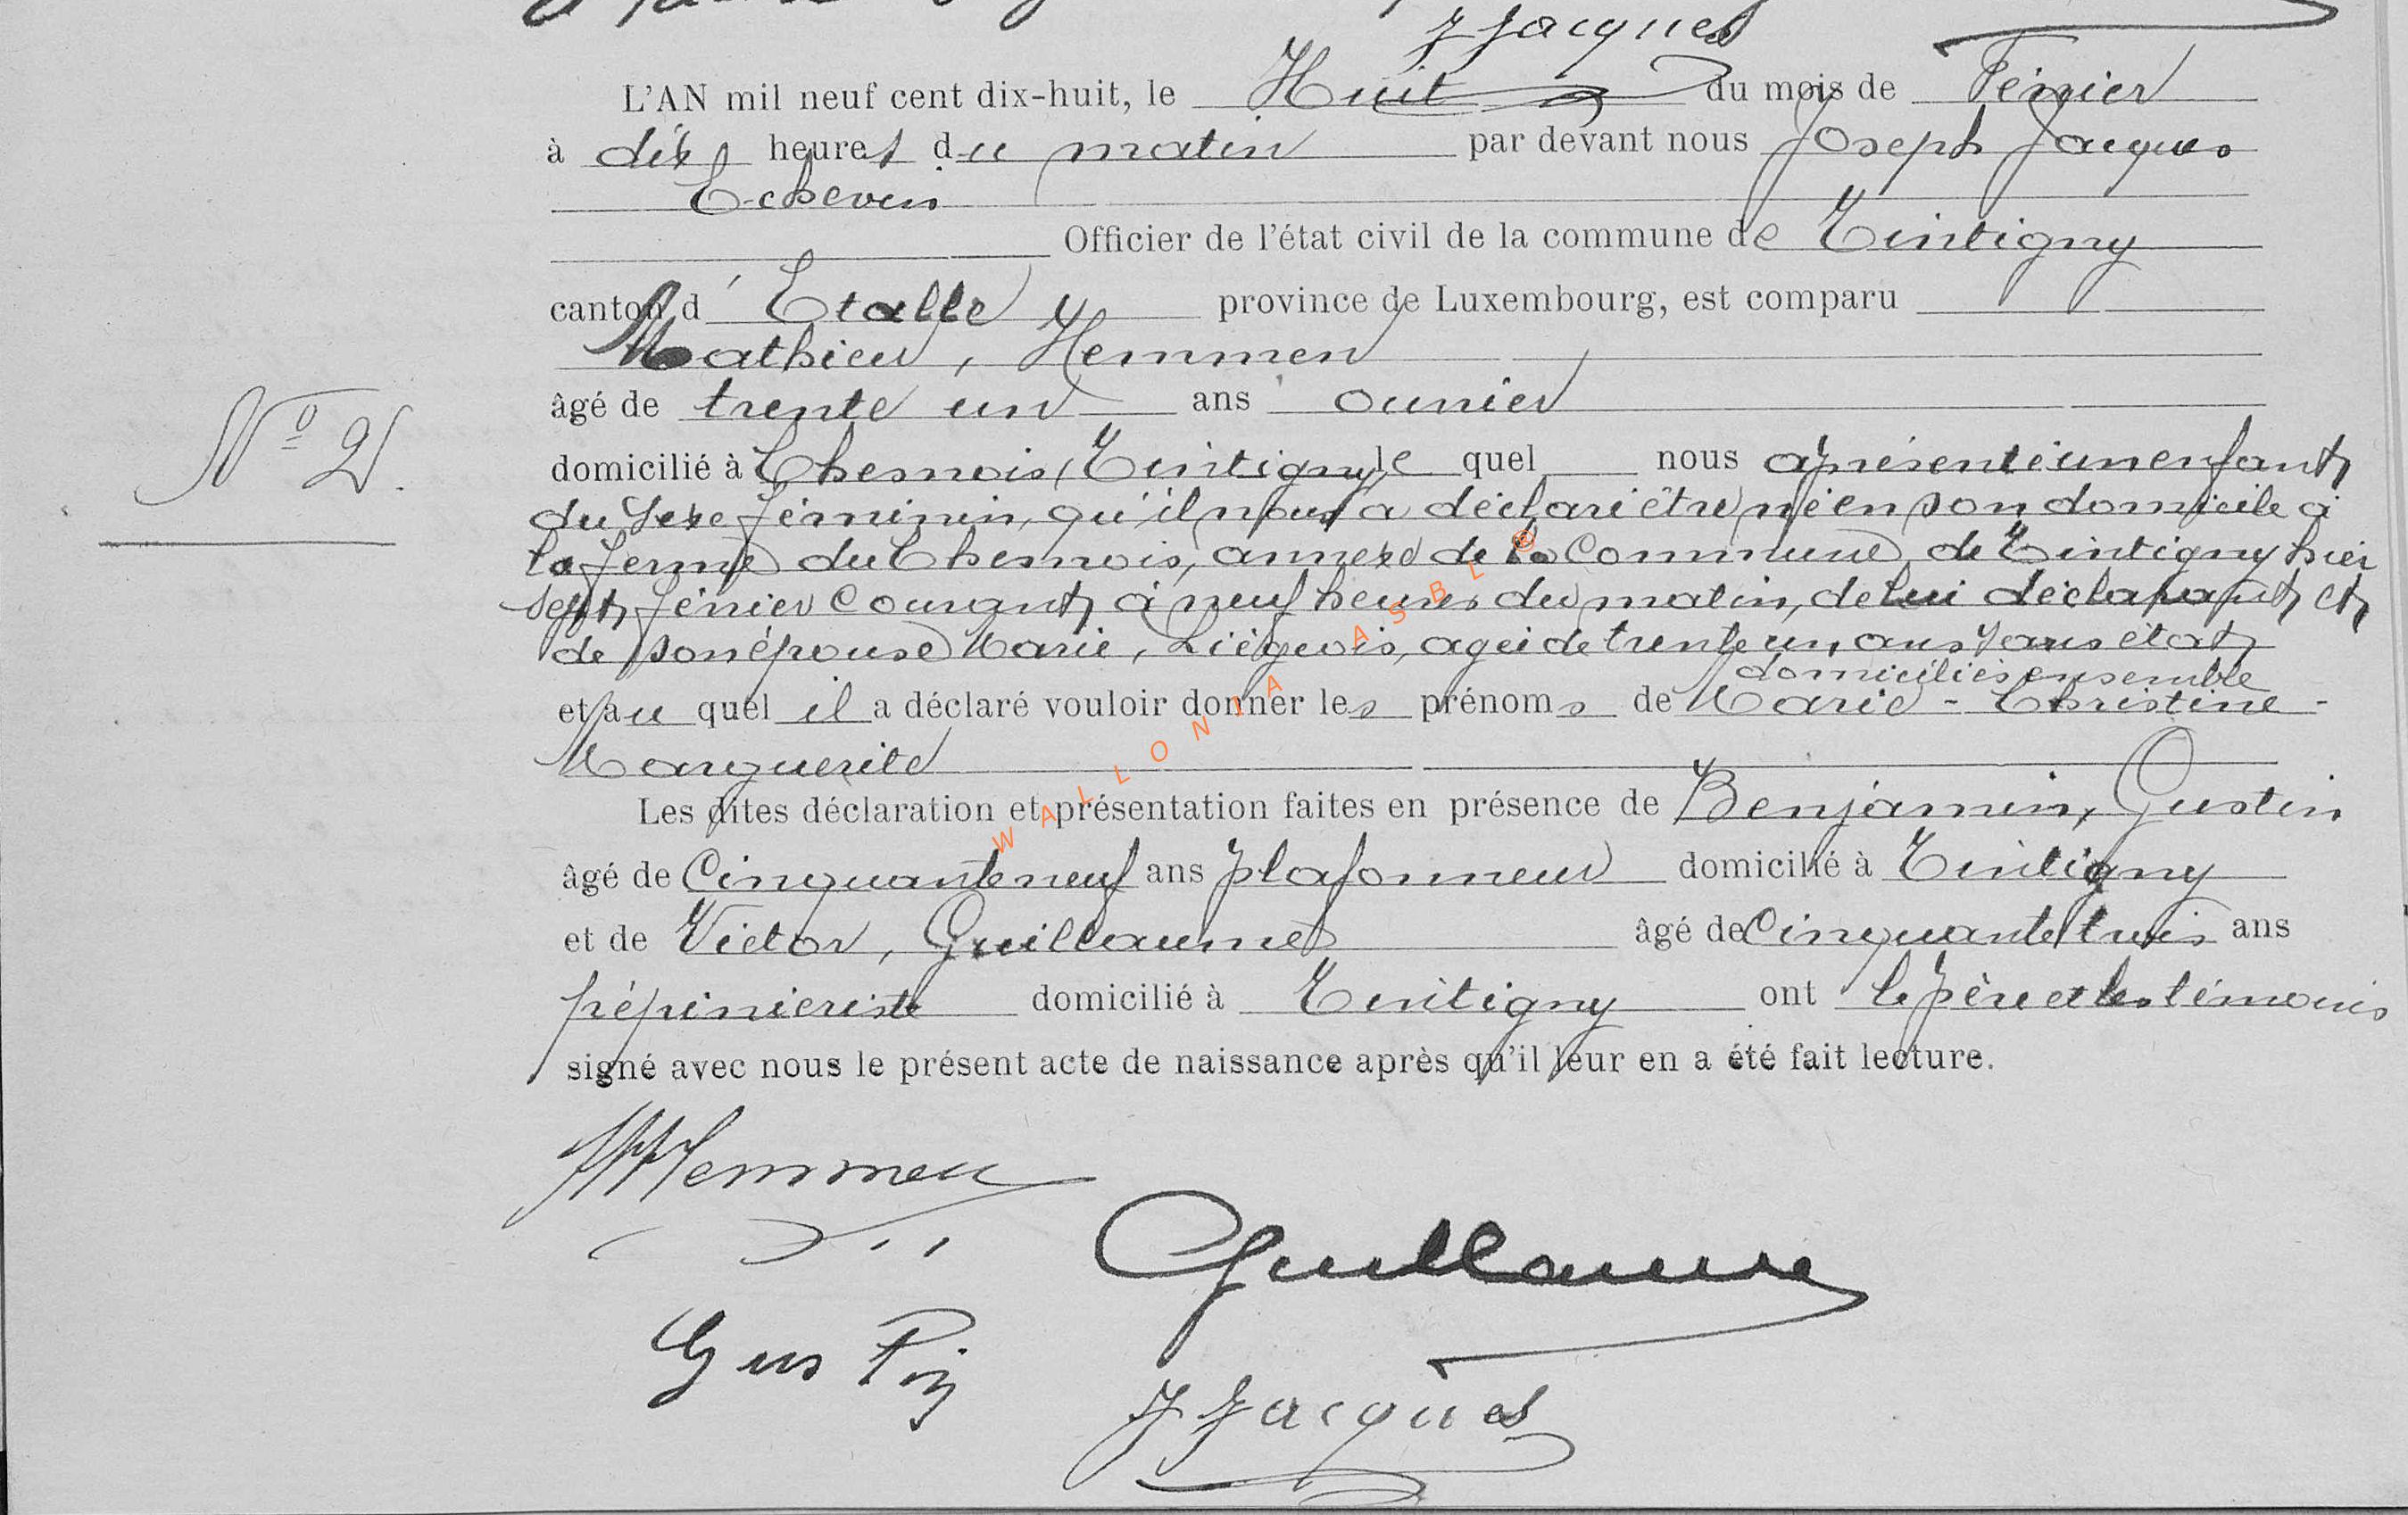 J Jacques
L'AN mil neuf cent dix-huit, le Huit du mois de Février
à dix heures du matin par devant nous Joseph Jacques
Echevin
Officier de l'état civil de la commune de Tintigny
canton d'Etalle province de Luxembourg, est comparu
Mathieu, Hemmen
âgé de trente un ans ouvrier
N° 2.
domicilié à Chesnois (Tintigny) le quel nous a présenté un enfant
du sexe féminin, qu'il nous a déclaré être né en son domicile à
la ferme du Chesnois, annexe de la Commune de Tintigny hier
sept février courant à neuf heures du matin, de lui déclarant et
de son épouse Marie, Liégeois, agée de trente un ans sans état
domiciliés ensemble
et au quel il a déclaré vouloir donner les prénoms de Marie - Christine -
Marguerite
Les dites déclaration et présentation faites en présence de Benjamin, Gustin
âgé de Cinquante neuf ans plafonneur domicilié à Tintigny
et de Victor, Guillaume âgé de Cinquante trois ans
pépinieriste domicilié à Tintigny ont le père et les témoins
signé avec nous le présent acte de naissance après qu'il leur en a été fait lecture.
MHemmen
Guillaume
Gustin
J Jacques
WALLONIA ASBL ®